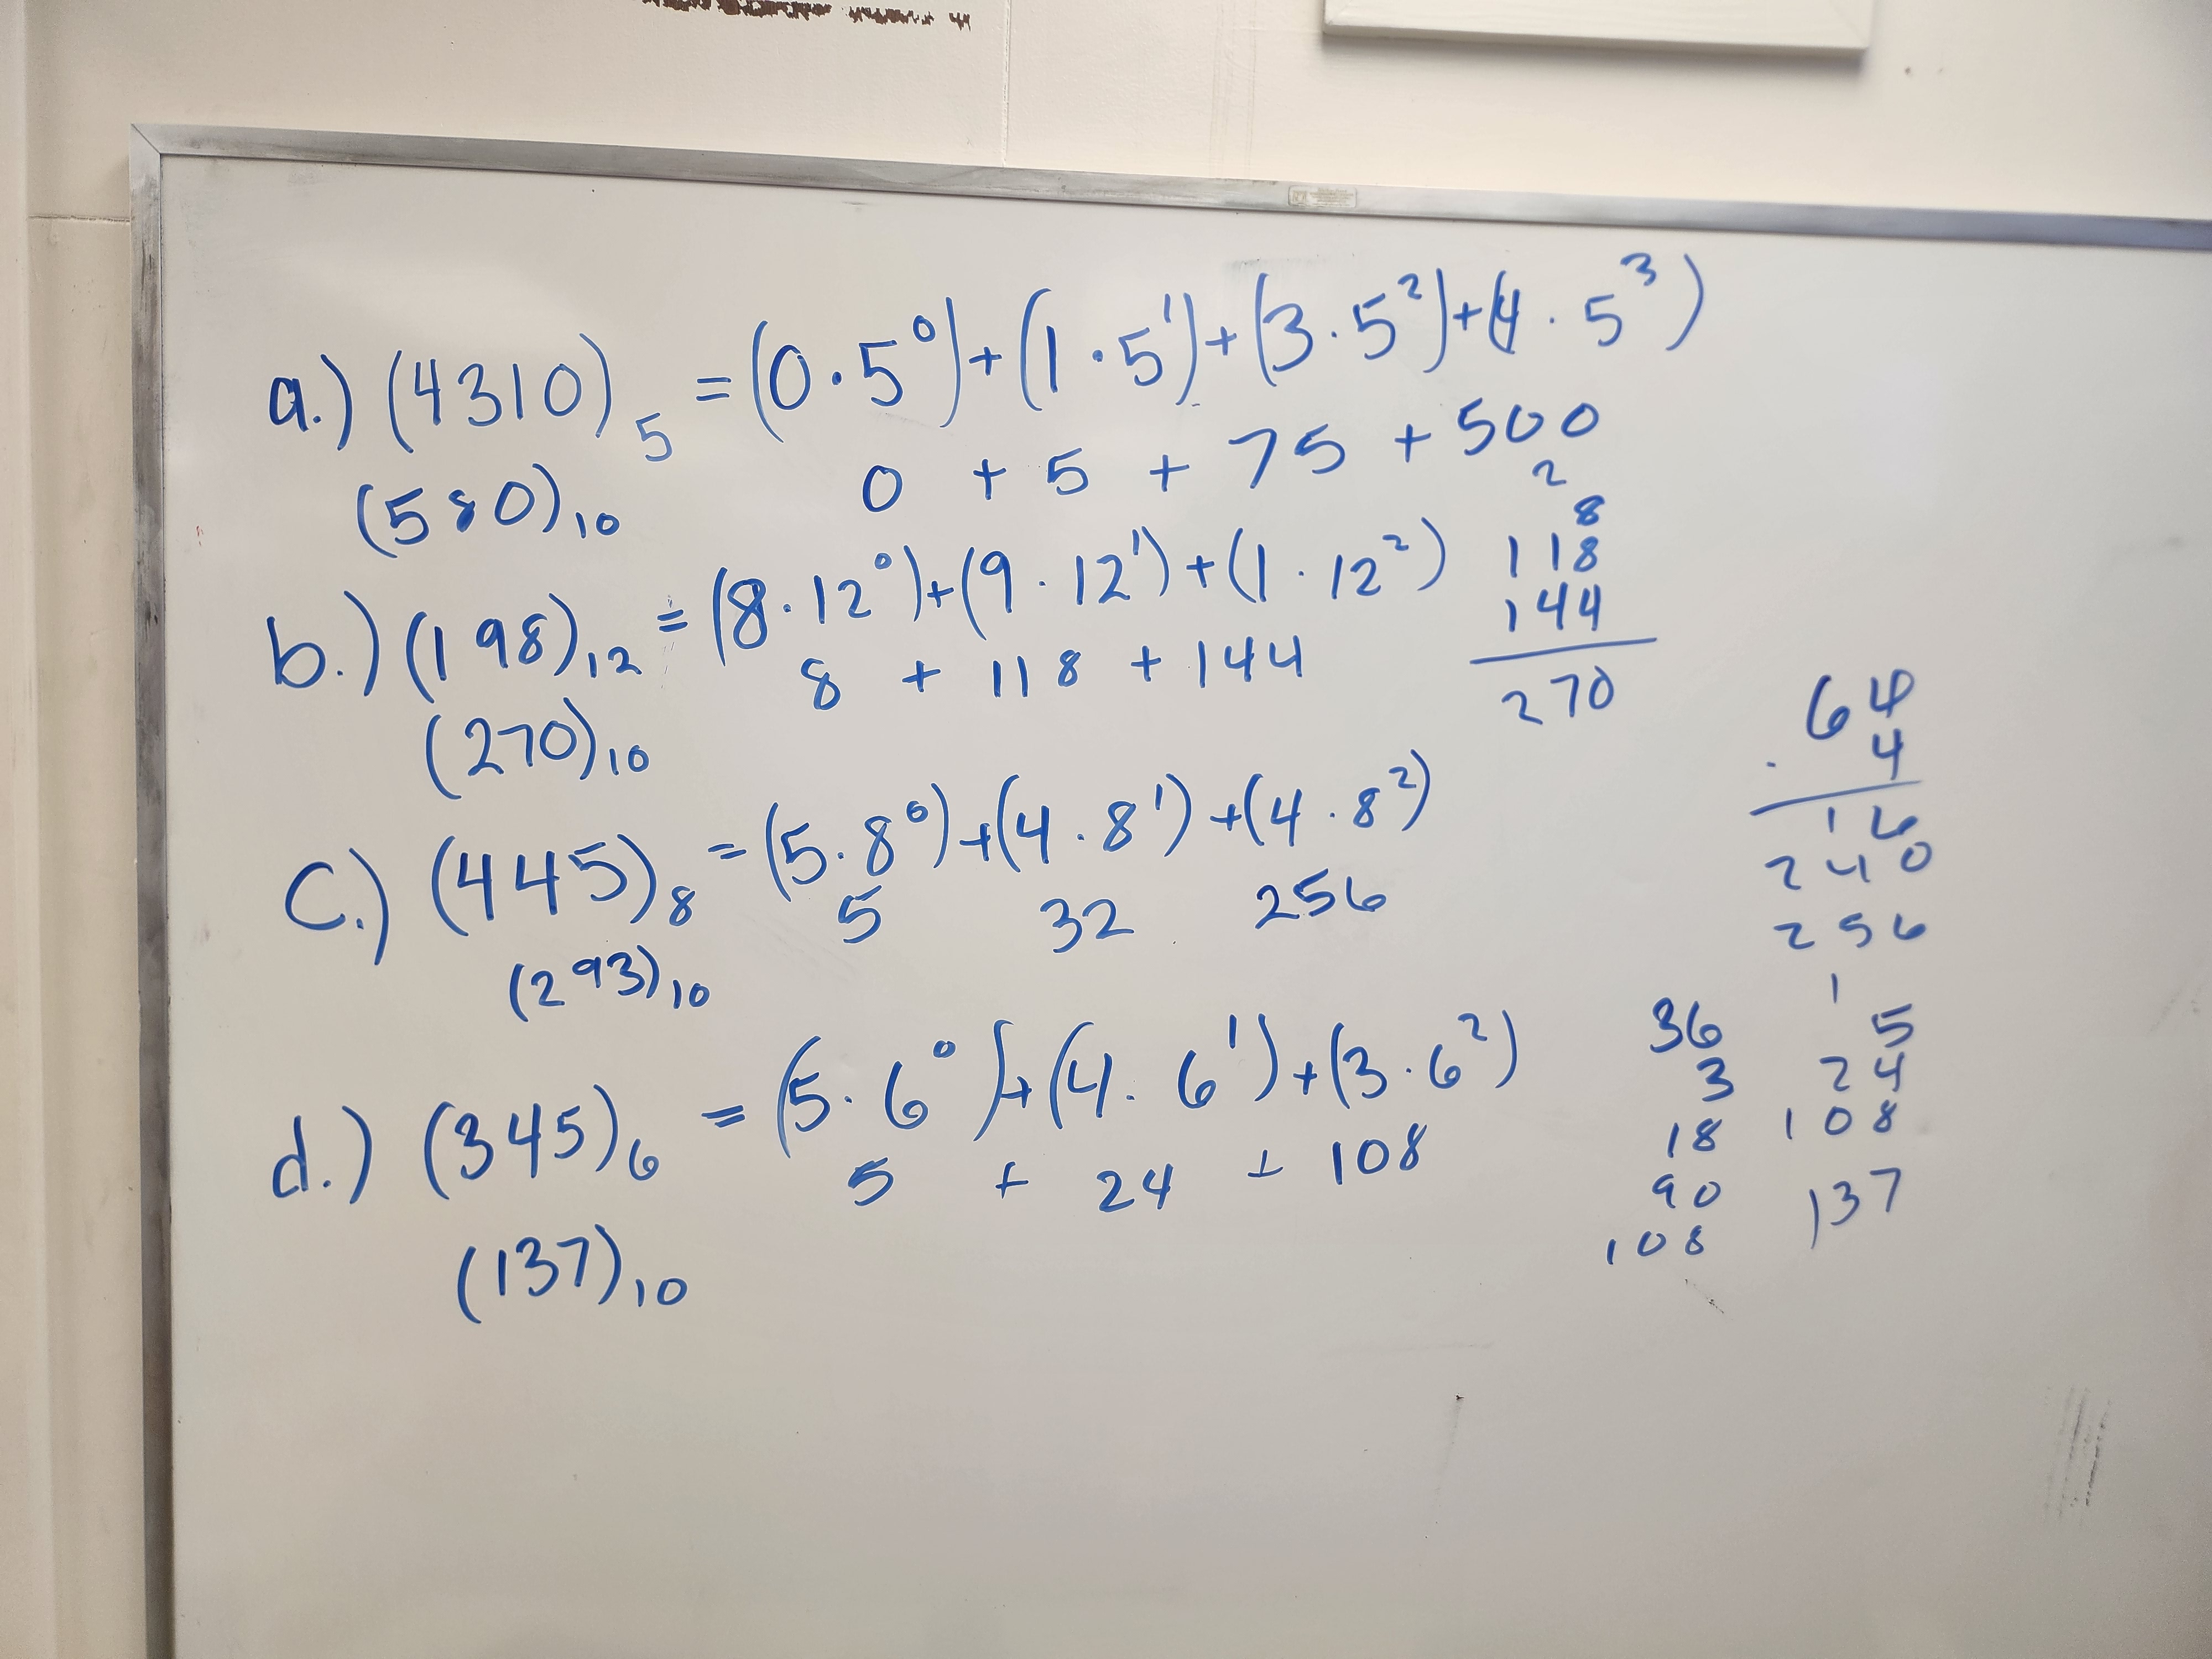 a.) (4310)₅ = (0·5⁰)+(1·5¹)+(3·5²)+(4·5³)
0 + 5 + 75 + 500
(580)₁₀
b.) (198)₁₂ = (8·12⁰)+(9·12¹)+(1·12²)
8 + 118 + 144
(270)₁₀
2
8
118
144
270
c.) (445)₈ = (5·8⁰)+(4·8¹)+(4·8²)
5 32 256
(293)₁₀
64
· 4
16
240
256
d.) (345)₆ = (5·6⁰)+(4·6¹)+(3·6²)
5 + 24 + 108
(137)₁₀
36
3
18
90
108
1
5
24
108
137